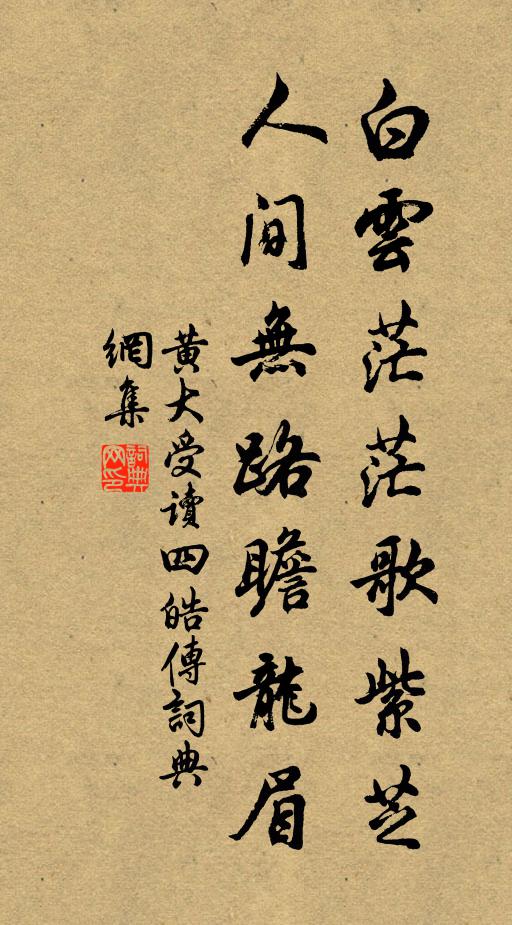 白雲茫茫歌紫芝
人間無路瞻龍眉
黃大受讀四皓傳詞典
網集
詞典網印